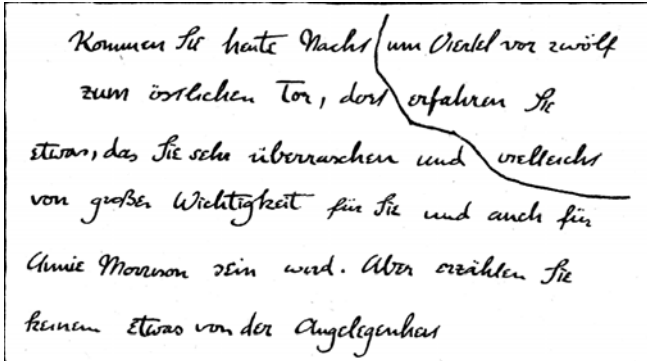 Kommen Sie heute Nacht um Viertel vor zwölf
zum östlichen Tor, dort erfahren Sie
etwas, das Sie sehr überraschen und vielleicht
von großer Wichtigkeit für Sie und auch für
Annie Morrison sein wird. Aber erzählen Sie
keinem etwas von der Angelegenheit